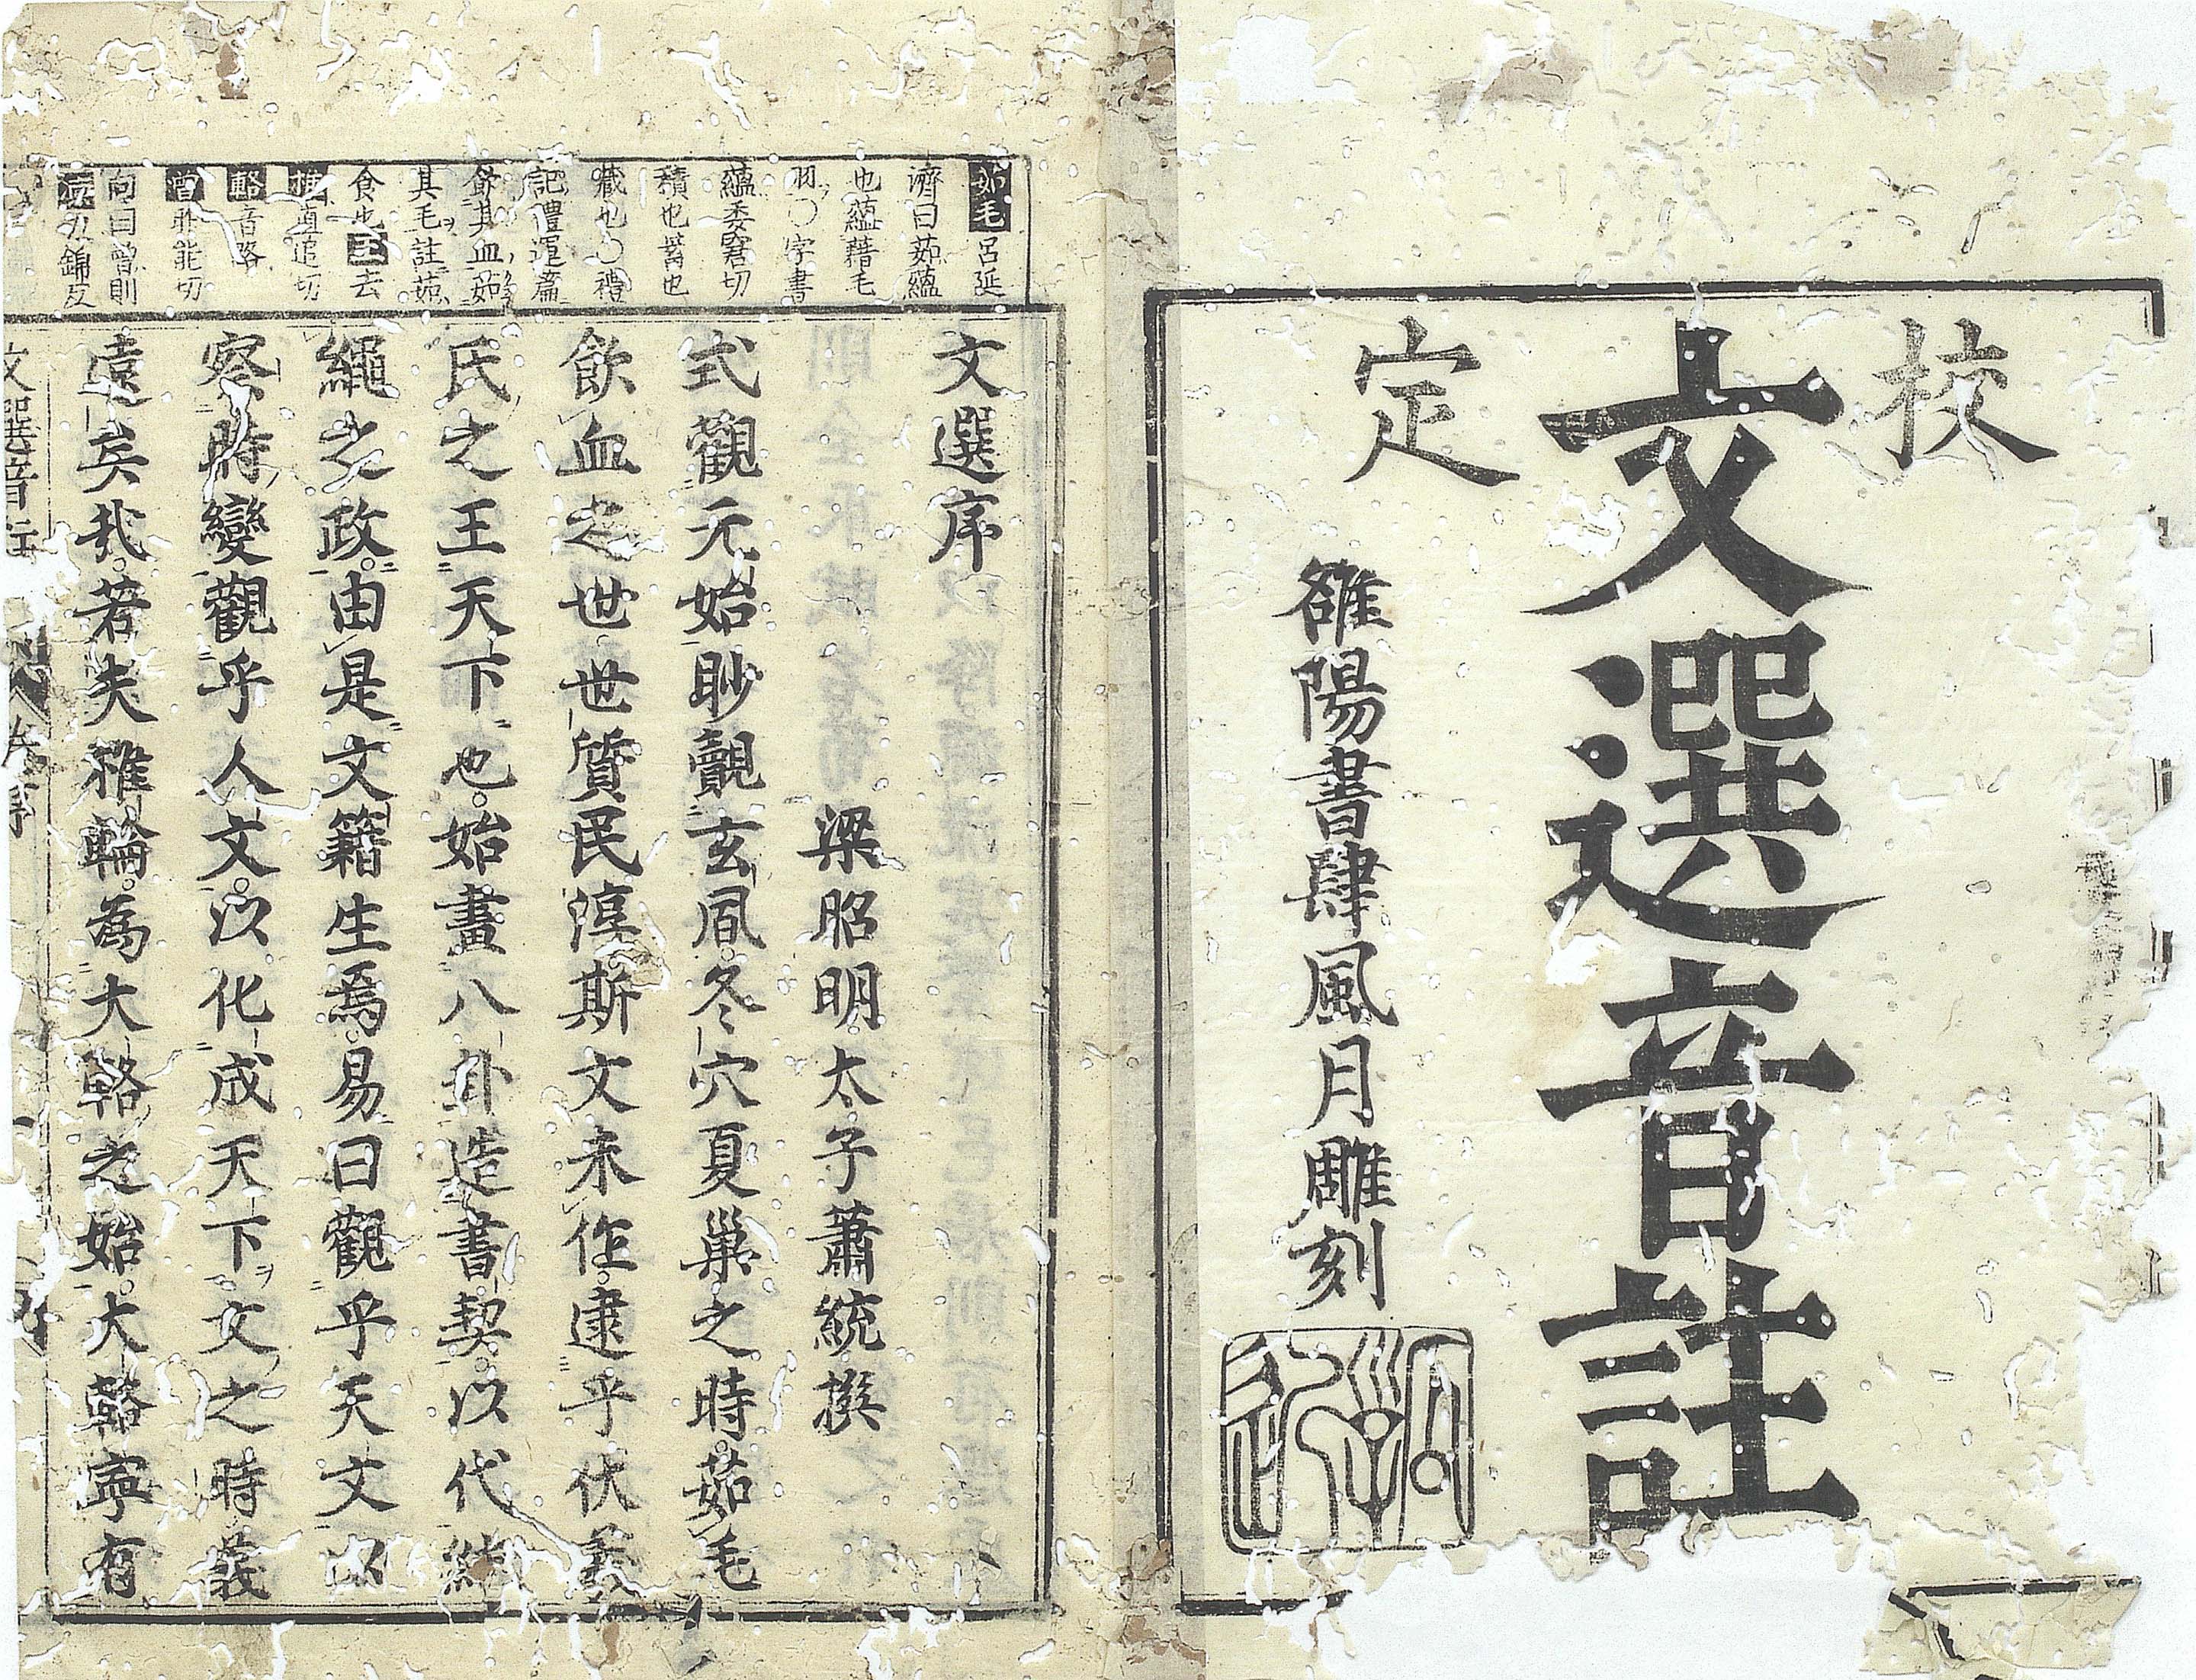 校
文選音註
定
雒陽書肆風月雕刻
茹毛呂延
濟曰茹蘊
也蘊藉毛
羽〇字書
蘊委窘切
積也蓄也
藏也〇禮
記禮運篇
飲其血茹
其毛註茹
食也王去
椎直追切
輅音路
曾昨能切
向曰曾則
文選序
梁昭明太子蕭統撰
式觀元始眇覿玄風冬穴夏巢之時茹毛
飲血之世世質民淳斯文未作逮乎伏羲
氏之王天下也始畫八卦造書契以代結
繩之政由是文籍生焉易曰觀乎天文以
察時變觀乎人文以化成天下文之時義
遠矣哉若夫椎輪為大輅之始大輅寧有
文選音註